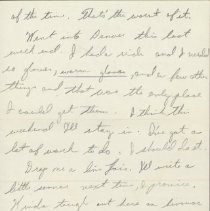 of the time. That's the worst of it.
Went into Denver this last
week end. I had a ride and I needed
some gloves, warm gloves, and a few other
things and that was the only place
I could get them. I think this
weekend I'll stay in. I've got a
lot of work to do. I should last.
Drop me a line, Lois. I'll write a
little sooner next time, I promise.
Kinda tough out here as